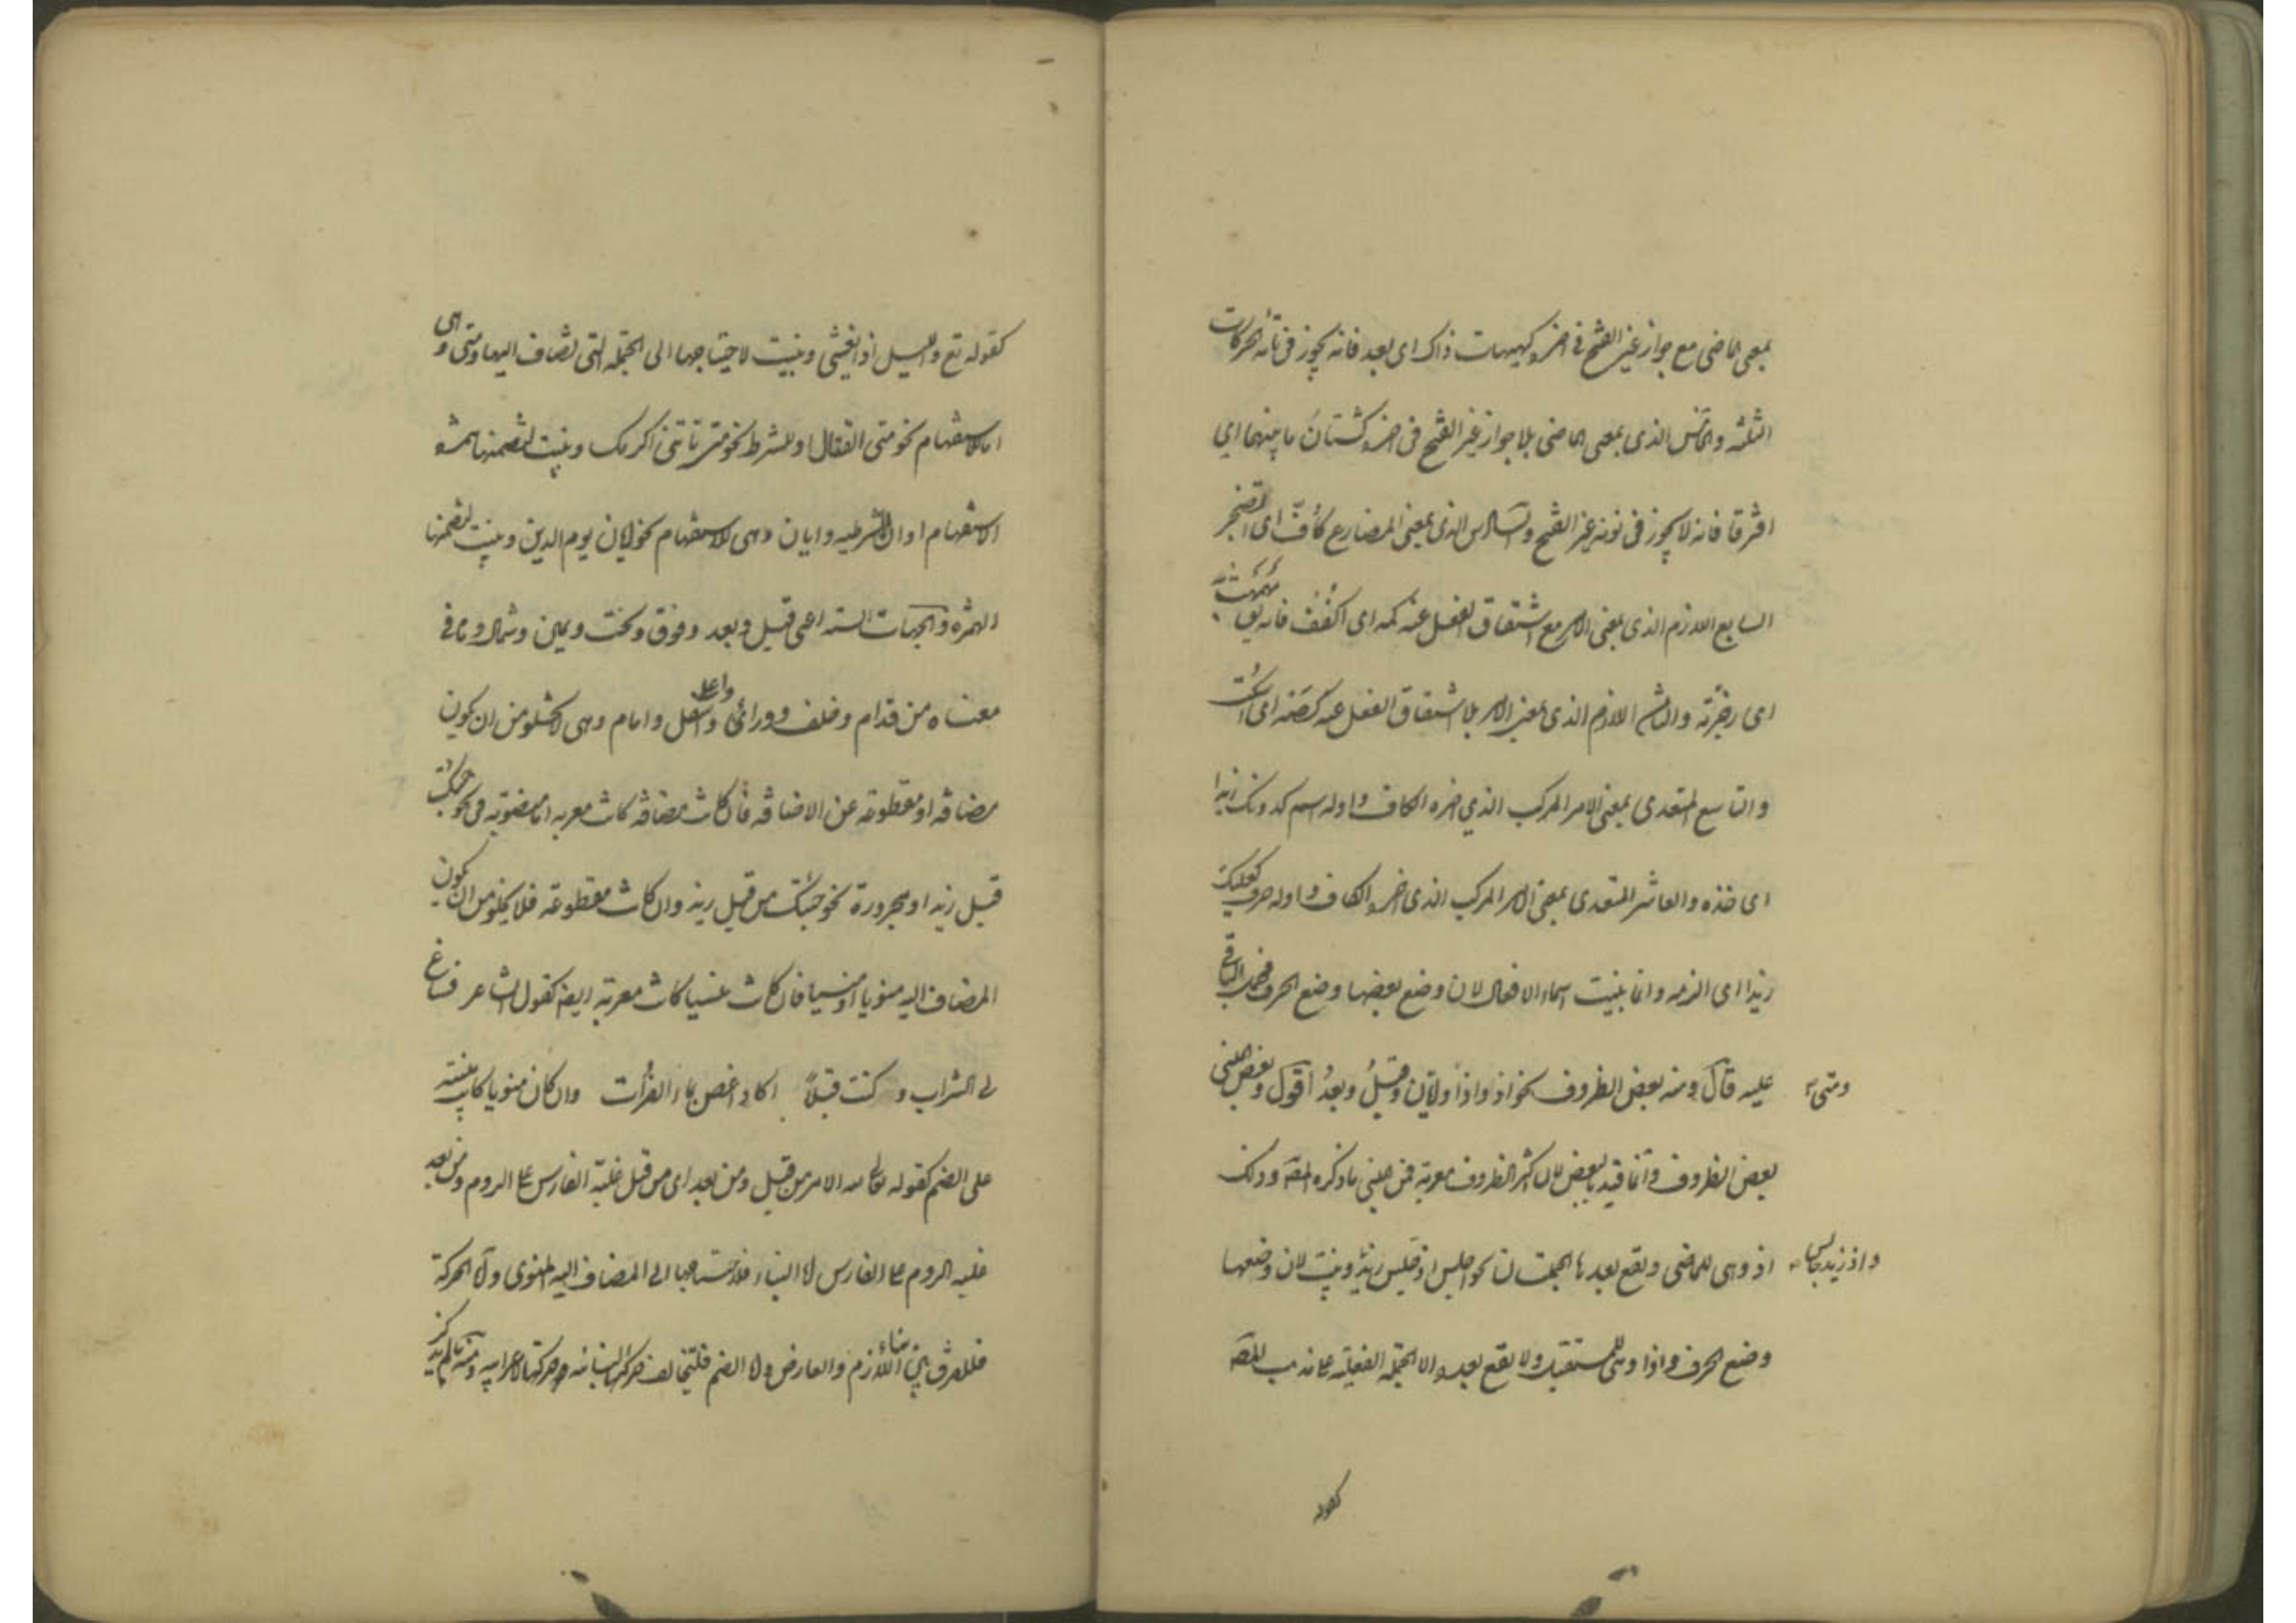 بمعنى الماضى مع جواز غير الفتح فى اخره كهيهات ذاك اى بعد فانه يجوز فى تائه الحركات
الثلثه والخامس الذى بمعنى الماضى بلا جواز غير الفتح فى اخره كشتان ما بينهما اى
افترقا فانه لا يجوز فى نونه غير الفتح والسادس الذى بمعنى المضارع كأفّ اى اتضجر
السابع اللازم الذى بمعنى الامر مع اشتقاق الفعل عنه كمه اى اكفف فانه يق مهمهت به
اى زجرته والثامن اللازم الذى بمعنى الامر بلا اشتقاق الفعل عنه كصَه اى اسكت
والتاسع المتعدى بمعنى الامر المركب الذي اخره الكاف واوله اسم كدونك زيدا
اى خذه والعاشر المتعدى بمعنى الامر المركب الذى اخره الكاف واوله حرف كعليك
زيدا اى الزمه وانما بنيت اسماء الافعال لان وضع بعضها وضع الحرف فحمل الباقى
عليه قال ومنه بعض الظروف نحو اذ واذا وايّان وقبلُ وبعدُ اقول وبعض المبنى
ومتى
بعض الظروف وانما قيد بالبعض لان اكثر الظروف معربة فمن المبنى ما ذكره المصَ وذلك
اذ وهى للماضى ويقع بعدها الجملتان نحو اجلس اذ جلس زيدٌ وبنيت لان وضعها
واذ زيد جالس
وضع الحرف واذا وهى للمستقبل ولا يقع بعده الا الجملة الفعلية على مذهب المصَ
كقوله
كقوله تع والليل اذا يغشى وبنيت لاحتياجها الى الجملة التى تضاف اليها ومتى وهى
اما للاستفهام نحو متى القتال او للشرط نحو متى تاتنى اكرمك وبنيت لتضمنها همزه
الاستفهام او ان الشرطيه وايان وهى للاستفهام نحو ايان يوم الدين وبنيت لتضمنها
الهمزه والجهات السته اعنى قبل وبعد وفوق وتحت ويمين وشمال وما فى
معناه من قدام وخلف ووراء واسفل وامام وهى لا تخلو من ان يكون
واعلى
مضافه او مقطوعه عن الاضافه فان كانت مضافه كانت معربه اما منصوبه نحو جئتك
قبل زيد او مجرورة نحو جئتك من قبل زيد وان كانت مقطوعه فلا يخلو من ان يكون
المضاف اليه منويا او منسيا فان كانت منسيا كانت معربة ايضا كقول الشاعر فساغ
لى الشراب وكنت قبلاً اكاد اغص بماء الفرات وان كان منويا كانت مبنيته
على الضم كقوله تعالى لله الامر من قبل ومن بعد اى من قبل غلبة الفارس على الروم ومن بعد
غلبه الروم على الفارس اما البناء فلاحتياجها الى المضاف اليه المنوى واما الحركة
فللفرق بين البناء اللازم والعارض واما الضم فليخالف حركتها البنائيه وحركتها الاعرابيه